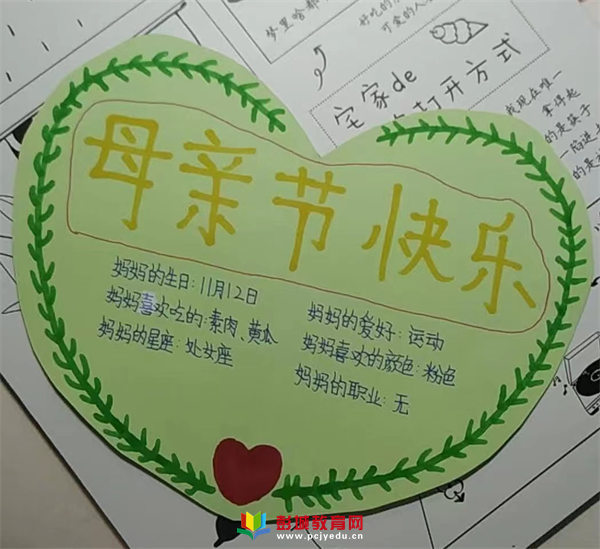 母亲节快乐
妈妈的生日:11月12日
妈妈喜欢吃的:素肉、黄瓜
妈妈的星座:处女座
妈妈的爱好:运动
妈妈喜欢的颜色:粉色
妈妈的职业:无
梦里啥都
好吃的
可爱的人
宅家de
打开方式
我现在唯一
拿得起
的是筷子
一陷进
的是
彭城教育网
www.pcjyedu.cn